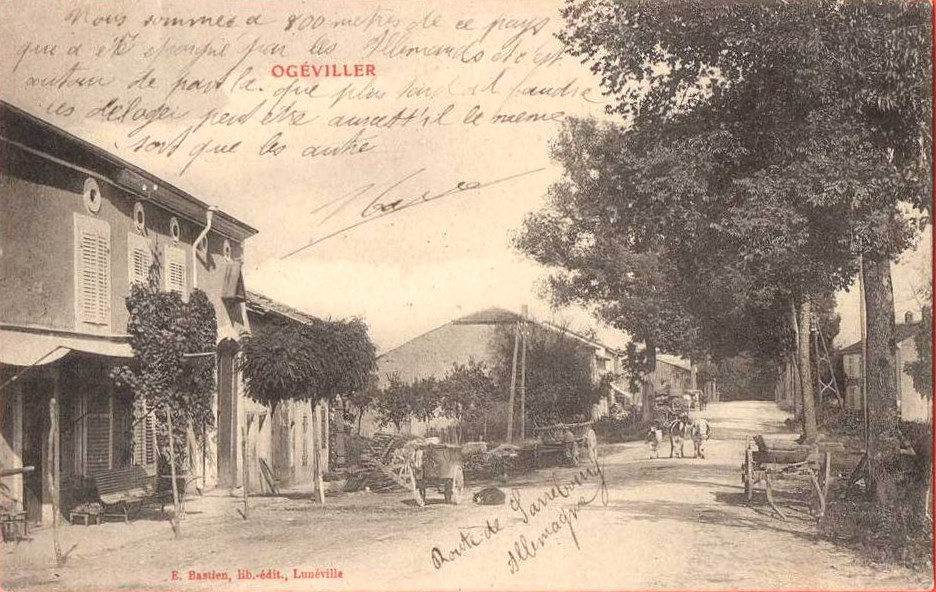 Nous sommes a 800 metres de ce pays
qui a été épargné par les Allemands et c'est
autour de par le que plus tard ad faudre
les deloger peut être auront t'il le meme
sort que les autre
OGÉVILLER
Route de Sarrebourg
Allemagne
E. Bastien, lib.-édit., Lunéville